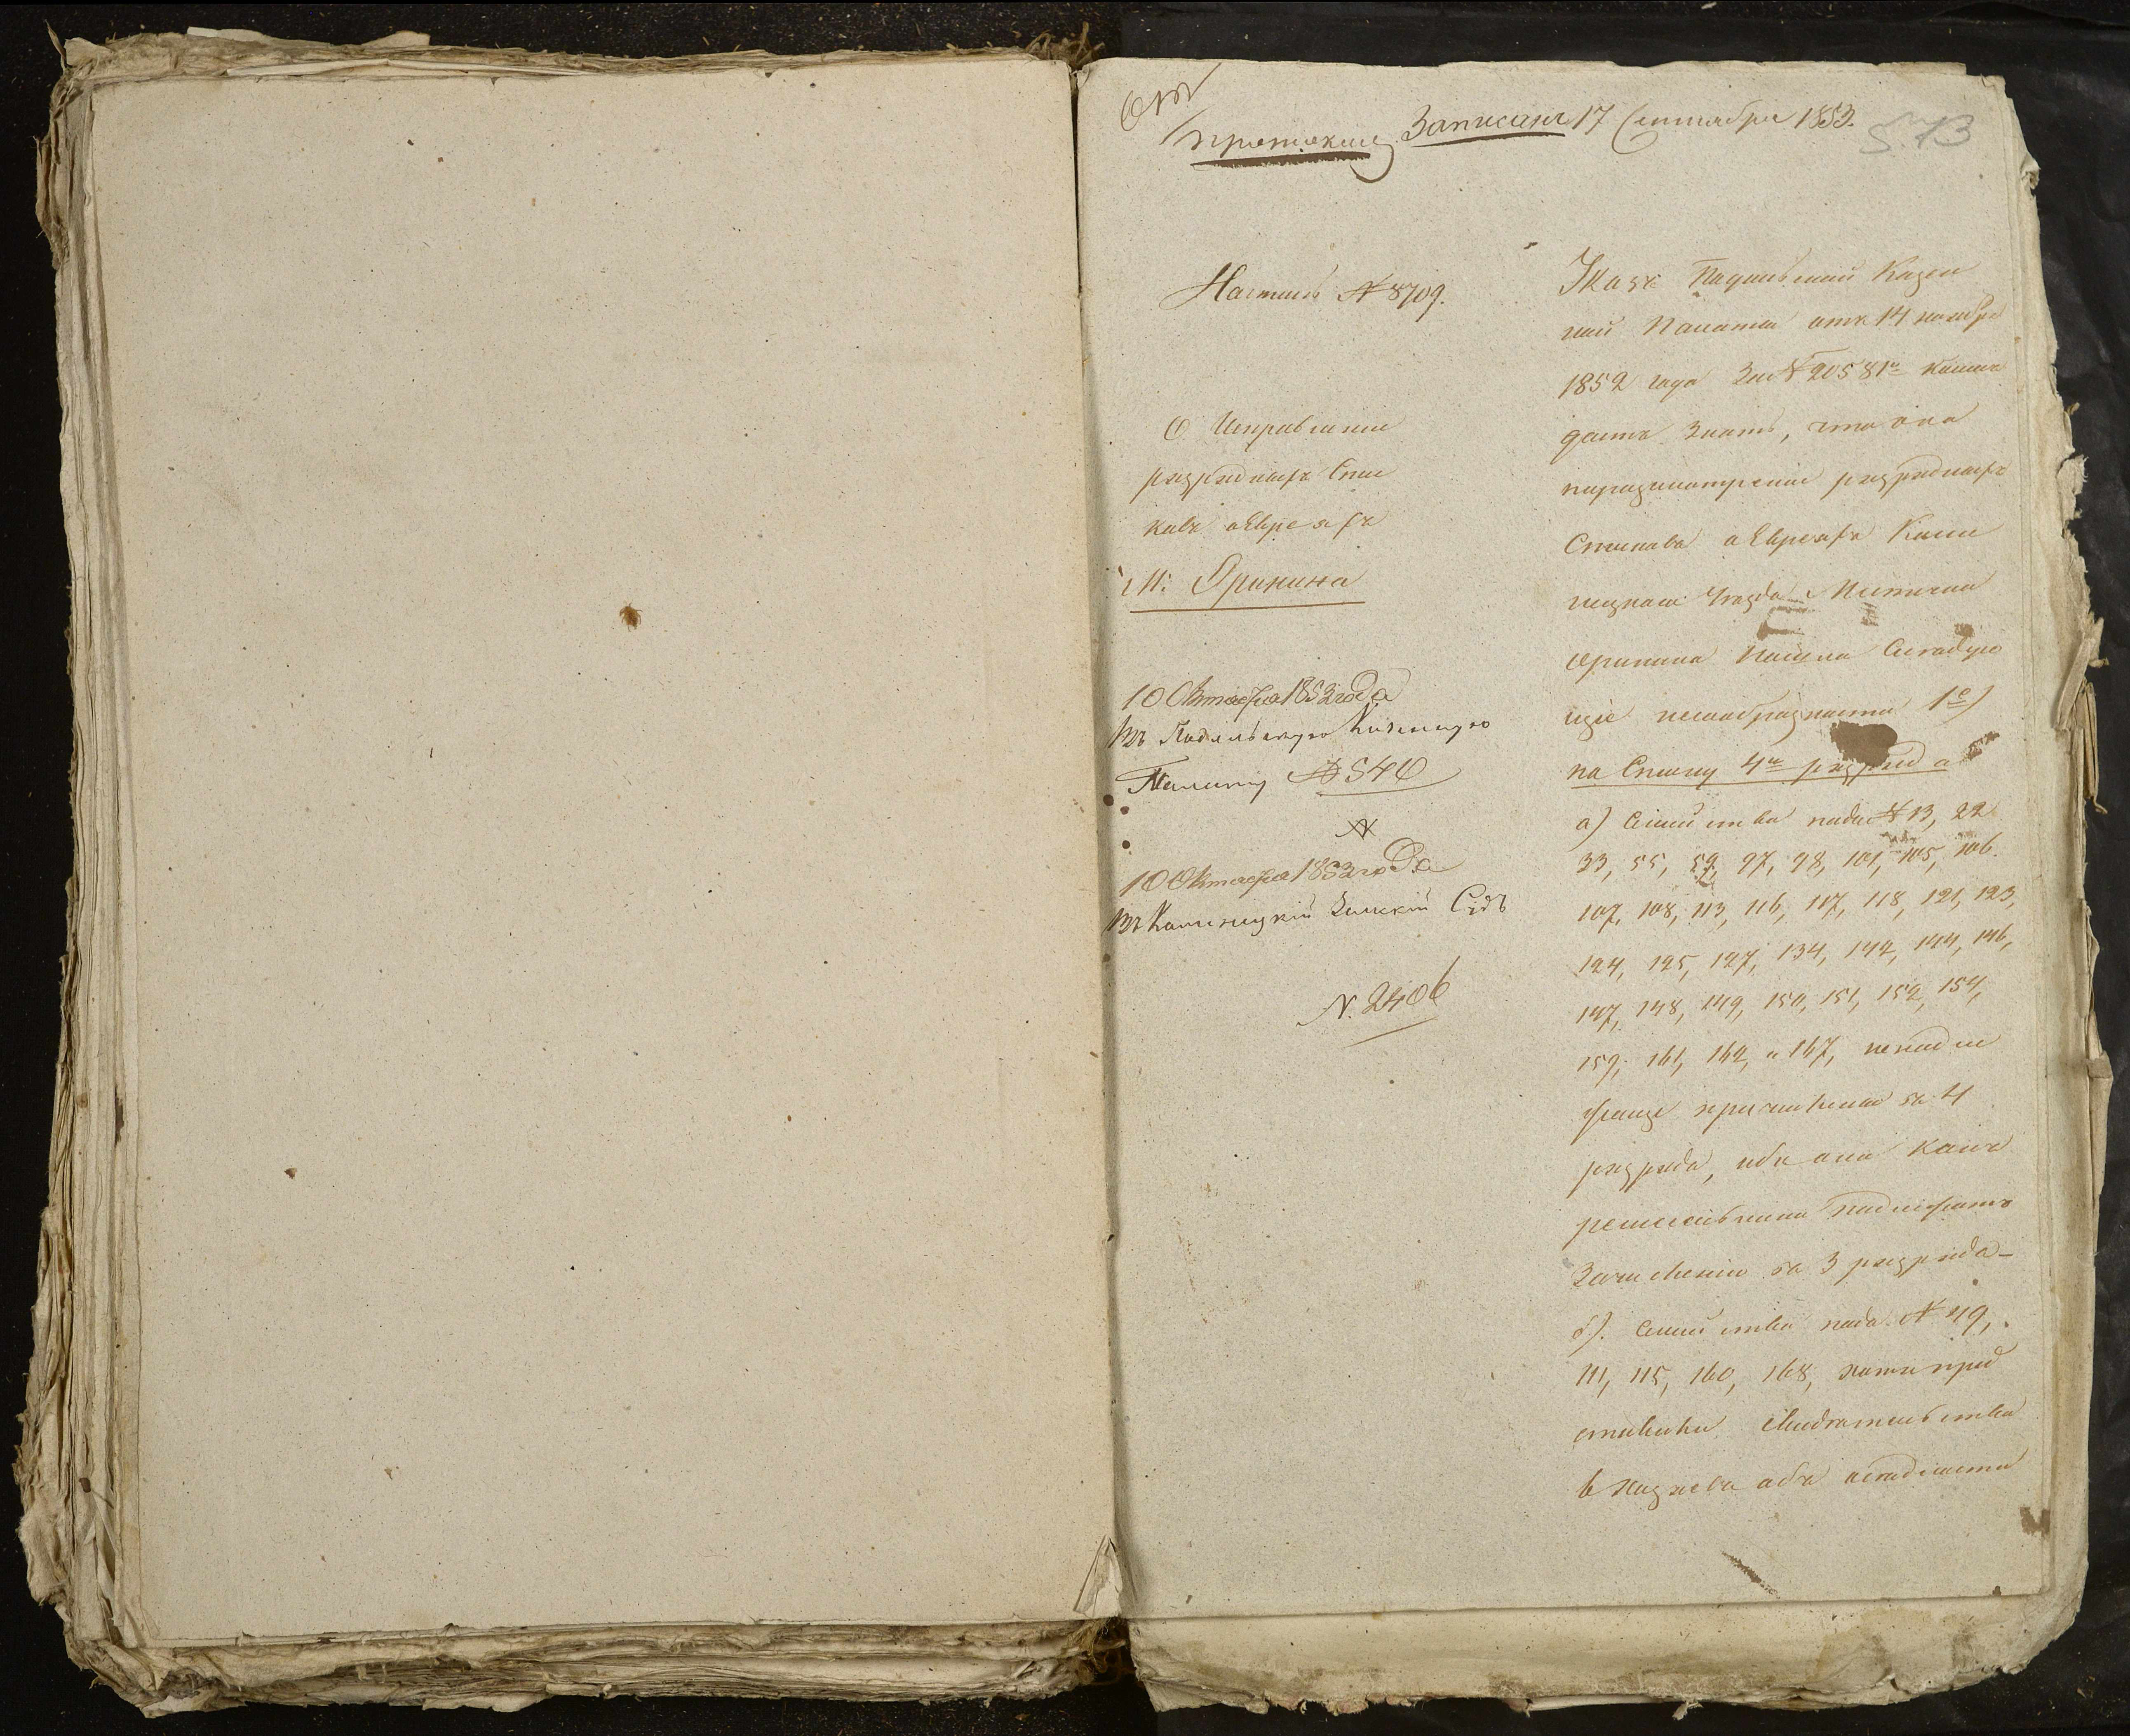 Протоколъ Записанъ 17 Сентября 1853.
Настолъ № 8709.
О Исправленiи
разрядныхъ Спис
ковъ о Евреяхъ
м: Оринина
10 Октября 1853 года
Въ Подольскую Казенную
Палату № 540
№
10 Октября 1853 года
Въ Каменецкiй Земскiй Судъ
N. 2406
Указъ Подольской Казен
ной Палаты отъ 14 ноября
1852 года За № 20581м коимъ
даетъ Знать, что она
по разсмотренiи разрядныхъ
Списковъ о Евреяхъ Каме
нецкаго Уезда Местечка
Оринина нашла Следую
щiе несообразности 1е)
по Списку 4го разряда
а) Семейства подъ № 13, 22
33, 55, 59, 97, 98, 101, 105, 106.
107, 108, 113, 116, 117, 118, 121, 123,
124, 125, 127, 134, 142, 144, 146,
147, 148, 149, 150, 151, 152, 154,
159, 161, 162, и 167, неподле
жаще причислены къ 4
разряду, ибо они какъ
ремесленники подлежатъ
Зачисленiю къ 3 разряду –
б). Семейства подъ № 49,
111, 115, 160, 168, хотя пред
ставили свидетельства
объ оседлости